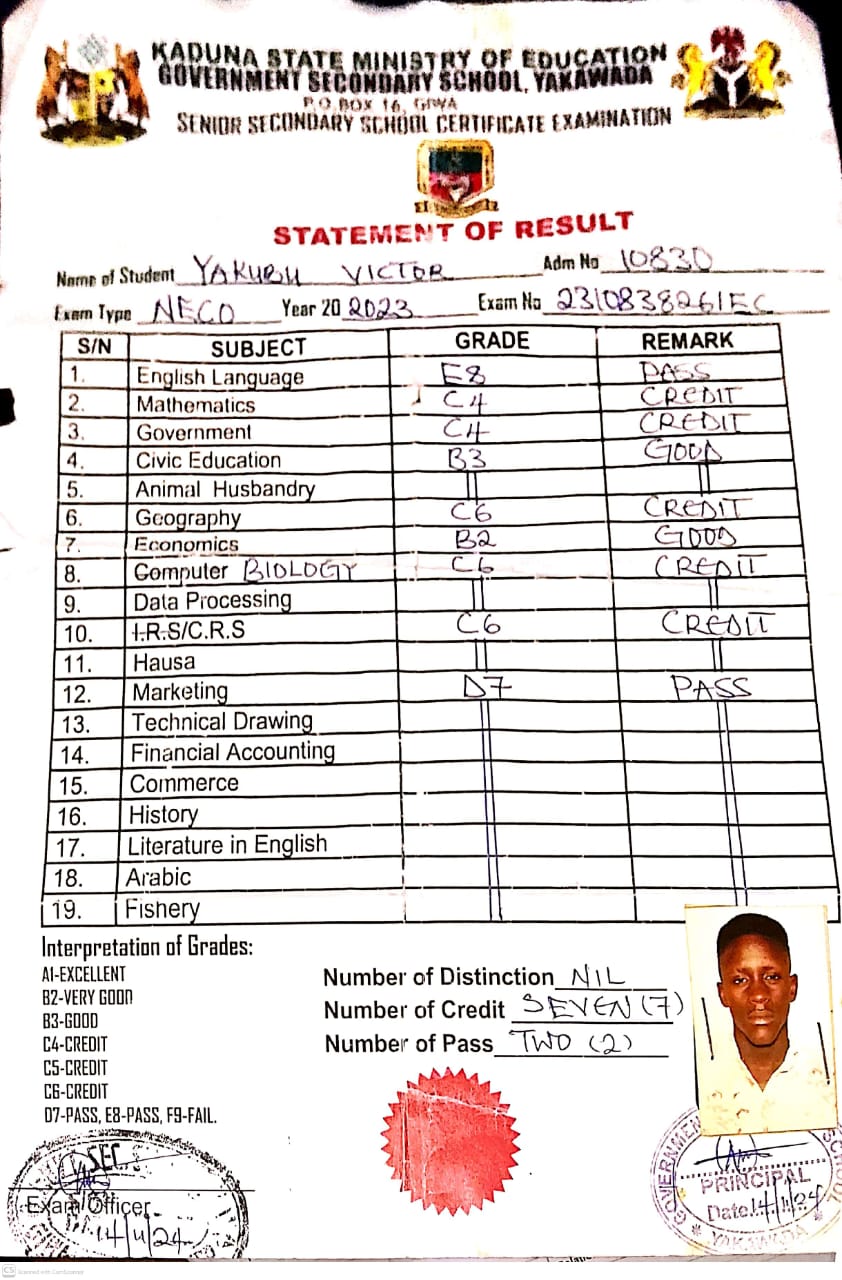 KADUNA STATE MINISTRY OF EDUCATION
GOVERNMENT SECONDARY SCHOOL, YAKAWADA
P.O.BOX 16, GIWA
SENIOR SECONDARY SCHOOL CERTIFICATE EXAMINATION
STATEMENT OF RESULT
Name of Student YAKUBU VICTOR Adm No 10830
Exam Type NECO Year 20 2023 Exam No 2310838261EC
S/N SUBJECT GRADE REMARK
1. English Language E8 PASS
2. Mathematics C4 CREDIT
3. Government C4 CREDIT
4. Civic Education B3 GOOD
5. Animal Husbandry
6. Geography C6 CREDIT
7. Economics B2 GOOD
8. Computer BIOLOGY C6 CREDIT
9. Data Processing
10. I.R.S/C.R.S C6 CREDIT
11. Hausa
12. Marketing D7 PASS
13. Technical Drawing
14. Financial Accounting
15. Commerce
16. History
17. Literature in English
18. Arabic
19. Fishery
Interpretation of Grades:
A1-EXCELLENT
B2-VERY GOOD
B3-GOOD
C4-CREDIT
C5-CREDIT
C6-CREDIT
D7-PASS, E8-PASS, F9-FAIL.
Number of Distinction NIL
Number of Credit SEVEN (7)
Number of Pass TWO (2)
SEC
Exam Officer
14/11/24
GOVERNMENT
PRINCIPAL
Date 14/11/24
YAKAWADA
CS Scanned with CamScanner